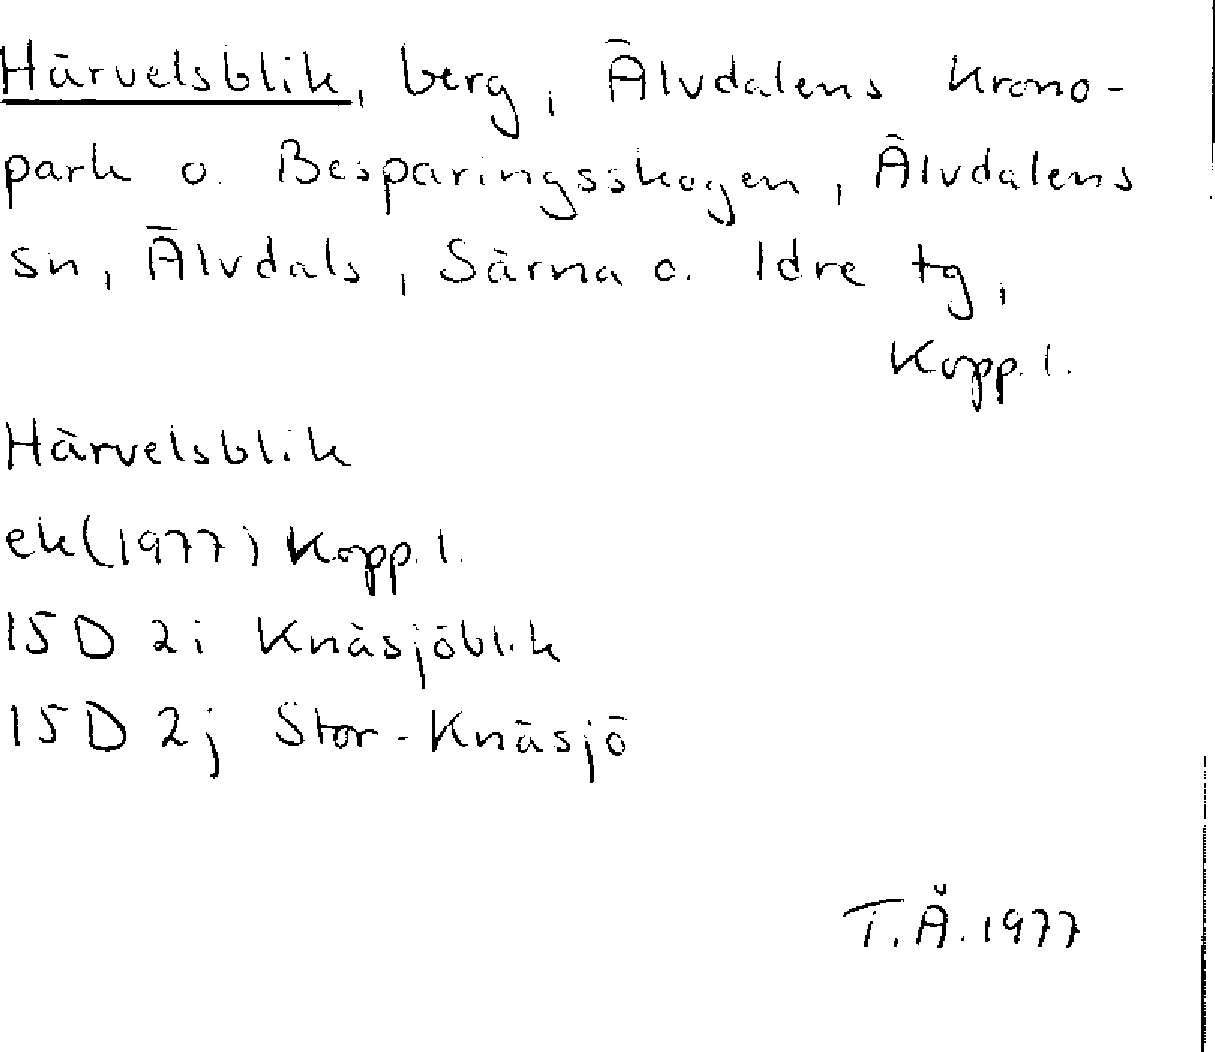 Härvelsblik, berg, Älvdalens Krono-
park o. Besparingsskogen, Älvdalens
sn, Älvdals, Särna o. Idre tg,
Kopp. l.
Härvelsblik
ek (1977) Kopp. l.
15D 2i Knäsjöblik
15D 2j Stor-Knäsjö
T.Å. 1977